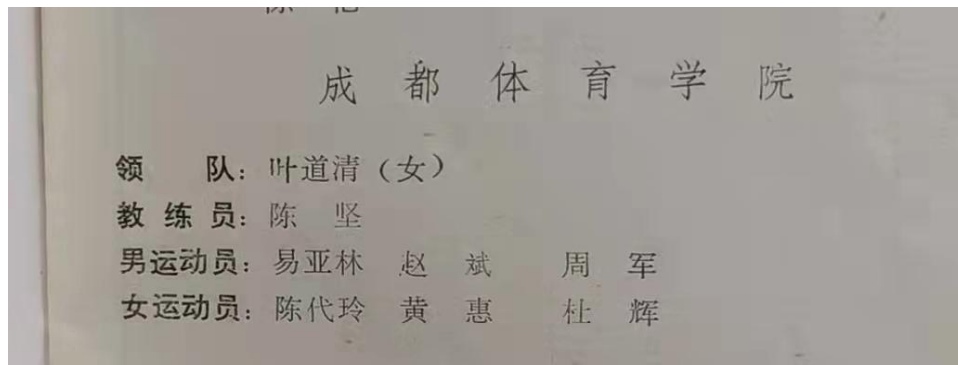 成都体育学院
领　队：叶道清（女）
教练员：陈　坚
男运动员：易亚林　赵　斌　周　军
女运动员：陈代玲　黄　惠　杜　辉